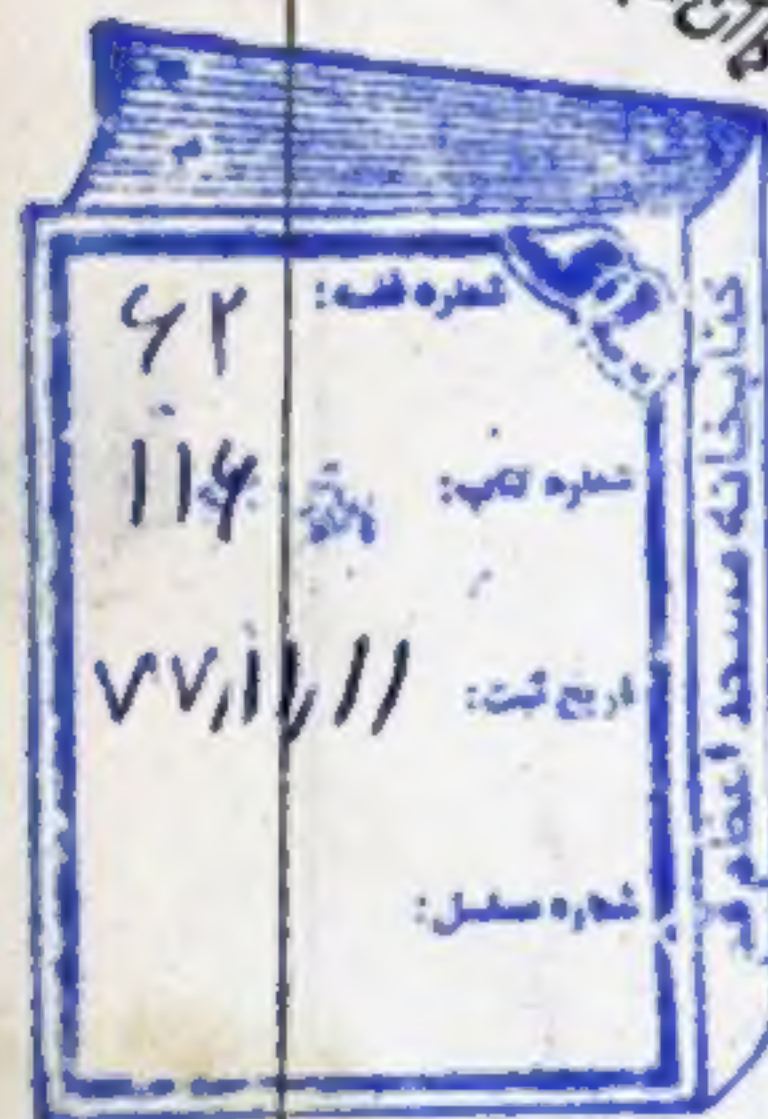 شماره قفسه: ۶۲
شماره کتاب: ۱۱۶
تاریخ ثبت: ۷۷/۱۱/۱۱
شماره مسلسل:
کتابخانه مسجد اعظم